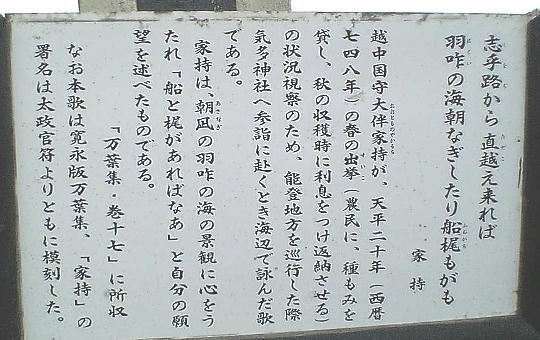 志乎路から 直越え来れば
羽咋の海朝なぎしたり船梶もがも
家持
越中国守大伴家持が、天平二十年(西暦
七四八年)の春の出挙(農民に、種もみを
貸し、秋の収穫時に利息をつけ返納させる)
の状況視察のため、能登地方を巡行した際
気多神社へ参詣に赴くとき海辺で詠んだ歌
である。
家持は、朝凪の羽咋の海の景観に心をう
たれ「船と梶があればなあ」と自分の願
望を述べたものである。
「万葉集・巻十七」に所収
なお本歌は寛永版万葉集、「家持」の
署名は太政官符よりともに模刻した。